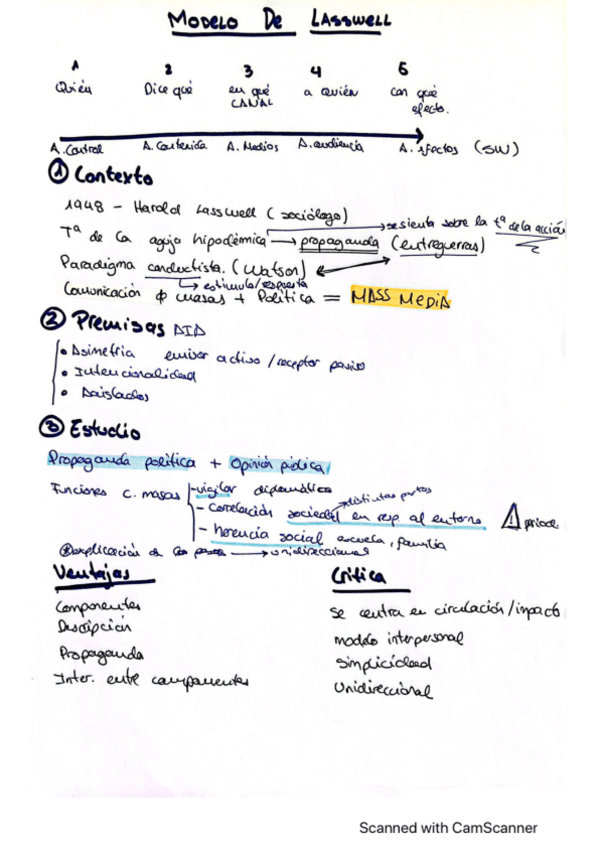 MODELO DE LASSWELL
1 2 3 4 5
Quién Dice qué en qué CANAL a quién con qué efecto.
A. Control A. Contenido A. Medios A. audiencia A. Efectos (SW)
① Contexto
1948 - Harold Lasswell (sociólogo)
→ se sienta sobre la tª de la acción
Tª de la aguja hipodérmica → propaganda (entreguerras)
Paradigma conductista. (Watson)
→ estímulo/respuesta
Comunicación masas + Política = MASS MEDIA
② Premisas AIA
• Asimetría emisor activo / receptor pasivo
• Intencionalidad
• Aislados
③ Estudio
Propaganda política + Opinión pública
Funciones c. masas - vigilar diplomático
→ distintas partes
- correlación sociedad en resp. al entorno
- herencia social escuela, familia
explicación de → unidireccional
Ventajas
Componentes
Descripción
Propaganda
Inter. entre componentes
Crítica
se centra en circulación/impacto
modelo interpersonal
Simplicidad
Unidireccional
Scanned with CamScanner